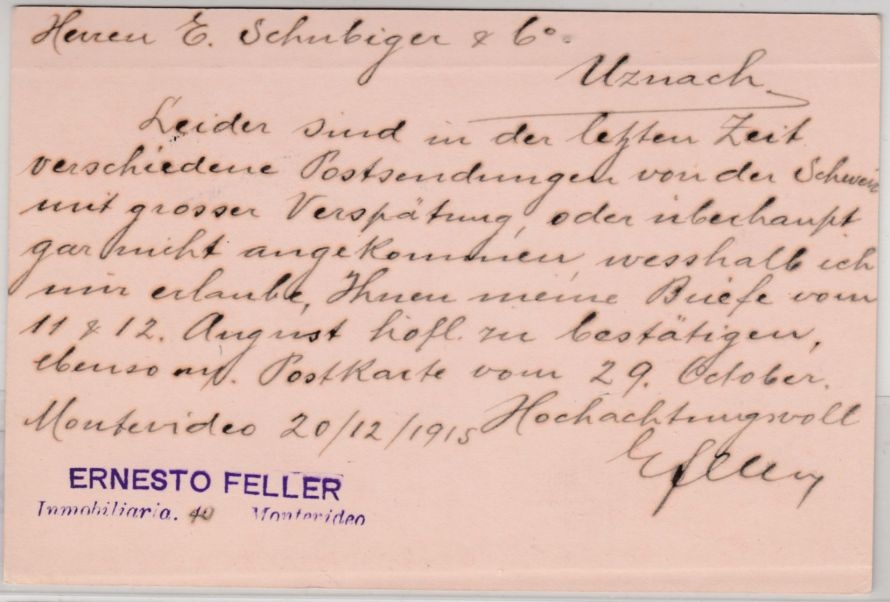 Herren E. Schubiger & Co.
Uznach
Leider sind in der letzten Zeit
verschiedene Postsendungen von der Schweiz
mit grosser Verspätung, oder überhaupt
gar nicht angekommen, wesshalb ich
mir erlaube, Ihnen meine Briefe vom
11 & 12. August höfl. zu bestätigen,
ebenso m. Postkarte vom 29. October.
Montevideo 20/12/1915 Hochachtungsvoll
EFeller
ERNESTO FELLER
Inmobiliaria. 40 Montevideo